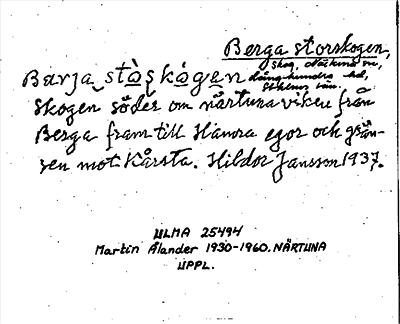 Berga storskogen,
skog, Närtuna sn,
Barja stòskògen långhundra hd,
Stkhlms län
skogen söder om närtunaviken från
Berga fram till Hamra egor och grän-
sen mot Kårsta. Hildor Jansson 1937.
ULMA 25494
Martin Ålander 1930-1960. NÄRTUNA
UPPL.